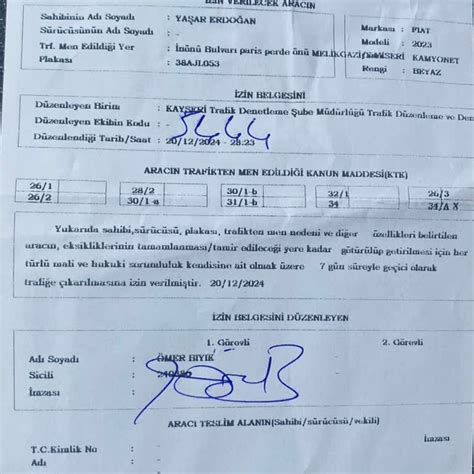 İZİN VERİLECEK ARACIN
Sahibinin Adı Soyadı : YAŞAR ERDOĞAN
Sürücüsünün Adı Soyadı : -
Trf. Men Edildiği Yer : İnönü Bulvarı paris perde önü MELİKGAZİ
Plakası : 38AJL053
Markası : FIAT
Modeli : 2023
KAMYONET
Rengi : BEYAZ
İZİN BELGESİNİ
Düzenleyen Birim : KAYSERİ Trafik Denetleme Şube Müdürlüğü Trafik Düzenleme ve Den
Düzenleyen Ekibin Kodu : - 5444
Düzenlendiği Tarih/Saat : 20/12/2024 - 23:23
ARACIN TRAFİKTEN MEN EDİLDİĞİ KANUN MADDESİ(KTK)
26/1 28/2 30/1-b 32/1 26/3
26/2 30/1-a 31/1-b 34 31/A X
Yukarıda sahibi,sürücüsü, plakası, trafikten men nedeni ve diğer özellikleri belirtilen
aracın, eksikliklerinin tamamlanması/tamir edileceği yere kadar götürülüp getirilmesi için her
türlü mali ve hukuki sorumluluk kendisine ait olmak üzere 7 gün süreyle geçici olarak
trafiğe çıkarılmasına izin verilmiştir. 20/12/2024
İZİN BELGESİNİ DÜZENLEYEN
1. Görevli 2. Görevli
Adı Soyadı : ÖMER BIYIK
Sicili :
İmzası :
ARACI TESLİM ALANIN(Sahibi/sürücüsü/vekili)
İmzası
T.C.Kimlik No :
Adı :